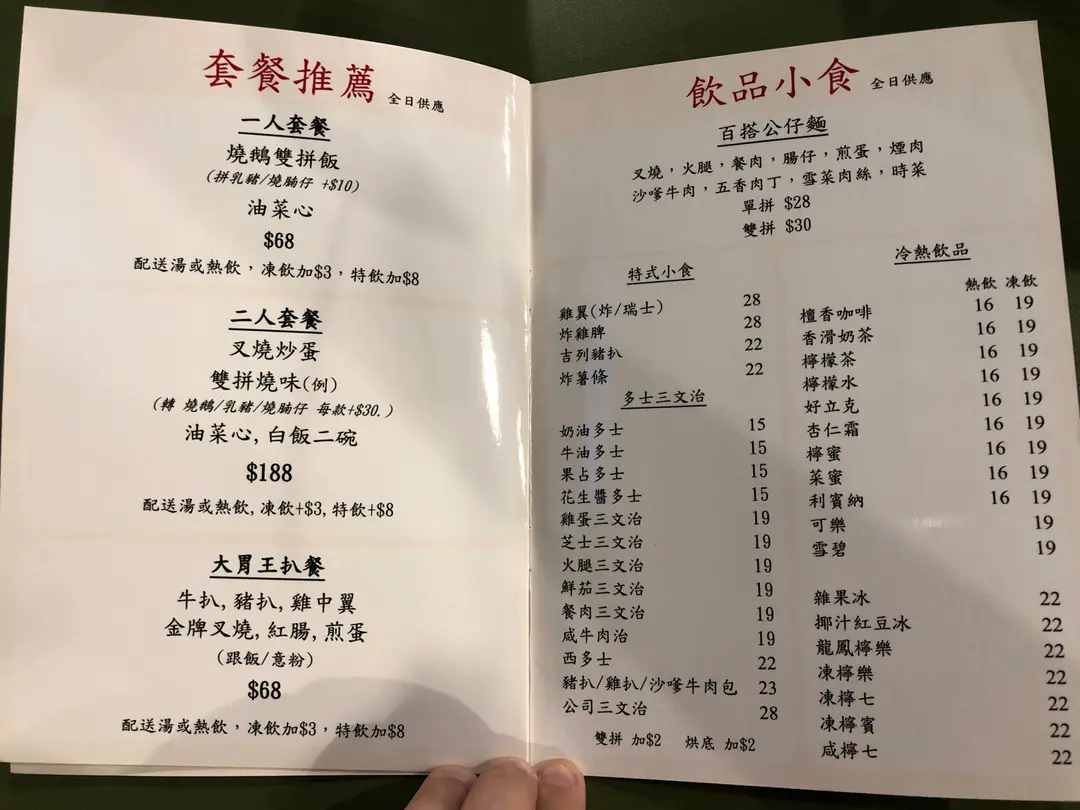 套餐推薦 全日供應
一人套餐
燒鵝雙拼飯
(拼乳豬/燒腩仔 +$10)
油菜心
$68
配送湯或熱飲，凍飲加$3，特飲加$8
二人套餐
叉燒炒蛋
雙拼燒味(例)
(轉 燒鵝/乳豬/燒腩仔 每款+$30.)
油菜心,白飯二碗
$188
配送湯或熱飲,凍飲+$3,特飲+$8
大胃王扒餐
牛扒,豬扒,雞中翼
金牌叉燒,紅腸,煎蛋
(跟飯/意粉)
$68
配送湯或熱飲，凍飲加$3，特飲加$8
飲品小食 全日供應
百搭公仔麵
叉燒，火腿，餐肉，腸仔，煎蛋，煙肉
沙嗲牛肉，五香肉丁，雪菜肉絲，時菜
單拼 $28
雙拼 $30
特式小食
雞翼(炸/瑞士) 28
炸雞脾 28
吉列豬扒 22
炸薯條 22
多士三文治
奶油多士 15
牛油多士 15
果占多士 15
花生醬多士 15
雞蛋三文治 19
芝士三文治 19
火腿三文治 19
鮮茄三文治 19
餐肉三文治 19
咸牛肉治 19
西多士 22
豬扒/雞扒/沙嗲牛肉包 23
公司三文治 28
雙拼 加$2 烘底 加$2
冷熱飲品
熱飲 凍飲
檀香咖啡 16 19
香滑奶茶 16 19
檸檬茶 16 19
檸檬水 16 19
好立克 16 19
杏仁霜 16 19
檸蜜 16 19
菜蜜 16 19
利賓納 16 19
可樂 19
雪碧 19
雜果冰 22
椰汁紅豆冰 22
龍鳳檸樂 22
凍檸樂 22
凍檸七 22
凍檸賓 22
咸檸七 22